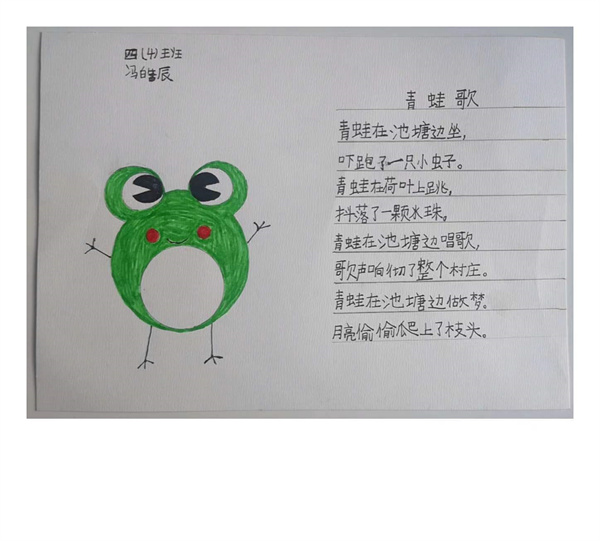 四(4)班
青蛙歌
青蛙在池塘边坐,
吓跑了一只小虫子。
青蛙在荷叶上跳,
抖落了一颗水珠。
青蛙在池塘边唱歌,
歌声响彻了整个村庄。
青蛙在池塘边做梦。
月亮偷偷爬上了枝头。